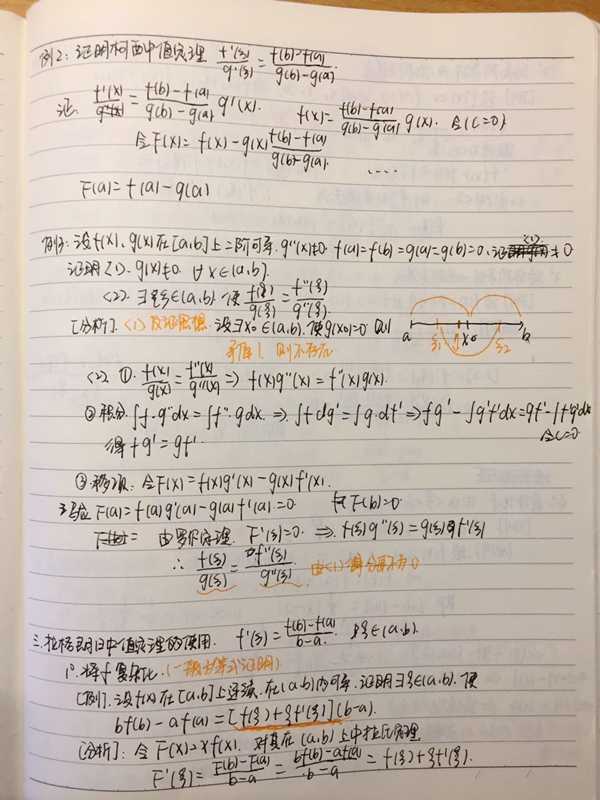 例2: 证明柯西中值定理 f'(ξ)/g'(ξ) = (f(b)-f(a))/(g(b)-g(a)).
证: f'(x) = (f(b)-f(a))/(g(b)-g(a)) g'(x). f(x) = (f(b)-f(a))/(g(b)-g(a)) g(x). 令(C=0)
令F(x) = f(x) - g(x) (f(b)-f(a))/(g(b)-g(a)). ....
F(a) = f(a) - g(a)
例3: 设f(x)、g(x)在[a,b]上二阶可导. g''(x)≠0. f(a)=f(b)=g(a)=g(b)=0. 证
证明<1>. g(x)≠0. ∀x∈(a,b).
<2>. ∃ξ∈(a,b). 使 f(ξ)/g(ξ) = f''(ξ)/g''(ξ).
[分析]. <1> 反证思想. 设∃x₀∈(a,b). 使g(x₀)=0 则
a ξ1 x₀ ξ2 b
矛盾!. 则不存在
<2>. ①. f(x)/g(x) = f''(x)/g''(x) ⇒ f(x)g''(x) = f''(x)g(x).
②积分 ∫f·g''dx = ∫f''·gdx. ⇒ ∫fdg' = ∫g·df' ⇒ fg' - ∫g'f'dx = gf' - ∫f'g'dx
得 fg' = gf'. 令C=0
③移项. 令F(x) = f(x)g'(x) - g(x)f'(x).
F(a) = f(a)g'(a) - g(a)f'(a) = 0 F(b)=0
由罗尔定理. F'(ξ)=0. ⇒ f(ξ)g''(ξ) = g(ξ)f''(ξ)
∴ f(ξ)/g(ξ) = f''(ξ)/g''(ξ). 由<1>得分母不为0
三. 拉格朗日中值定理的使用. f'(ξ) = (f(b)-f(a))/(b-a). ξ∈(a,b).
1° 将f复杂化. (一般为等式证明)
[例]. 设f(x)在[a,b]上连续. 在(a,b)内可导. 证明∃ξ∈(a,b). 使
bf(b) - af(a) = [f(ξ)+ξf'(ξ)](b-a).
[分析]: 令F(x) = xf(x). 对其在(a,b)上中拉氏定理
F'(ξ) = (F(b)-F(a))/(b-a) = (bf(b)-af(a))/(b-a) = f(ξ)+ξf'(ξ).